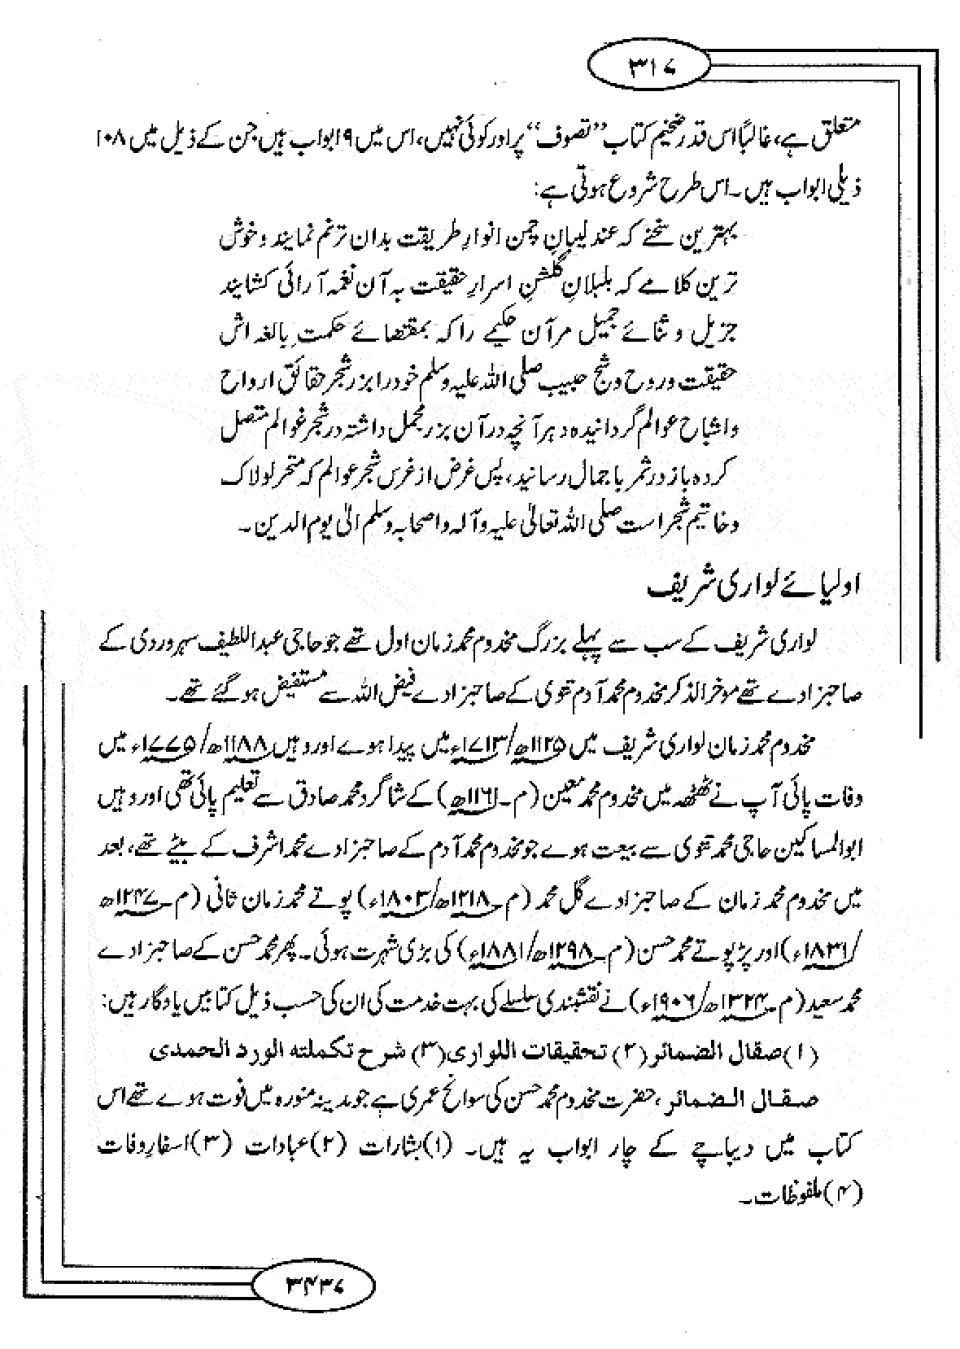 ۳۱۷
متعلق ہے، غالبًا اس قدر ضخیم کتاب ’’تصوف‘‘ پر اور کوئی نہیں، اس میں ۱۹ ابواب ہیں جن کے ذیل میں ۱۰۸
ذیلی ابواب ہیں۔ اس طرح شروع ہوتی ہے:
بہترین سخنے کہ عندلیبانِ چمن انوارِ طریقت بدان ترنم نمایند و خوش
ترین کلامے کہ بلبلانِ گلشنِ اسرارِ حقیقت بہ آن نغمہ آرائی کشایند
جزیل و ثنائے جمیل مر آن حکیمے را کہ بمقتضائے حکمت بالغہ اش
حقیقت و روح و شج حبیب صلی اللہ علیہ وسلم خود را بزر شجر حقائق ارواح
و اشباح عوالم گردانیدہ و ہر آنچہ در آن بزر مجمل داشتہ در شجر عوالم متصل
کردہ باز در ثمر باجمال رسانید، پس غرض از غرس شجر عوالم کہ متحر لولاک
و خاتیم شجر است صلی اللہ تعالیٰ علیہ وآلہ واصحابہ وسلم الیٰ یوم الدین۔
اولیائے لواری شریف
لواری شریف کے سب سے پہلے بزرگ مخدوم محمد زمان اول تھے جو حاجی عبداللطیف سہروردی کے
صاحبزادے تھے موخرالذکر مخدوم محمد آدم تقوی کے صاحبزادے فیض اللہ سے مستفیض ہو گئے تھے۔
مخدوم محمد زمان لواری شریف میں ۱۱۲۵ھ/۱۷۱۳ء میں پیدا ہوے اور وہیں ۱۱۸۸ھ/۱۷۷۵ء میں
وفات پائی آپ نے ٹھٹھہ میں مخدوم محمد معین (م۔۱۱۶۱ھ) کے شاگرد محمد صادق سے تعلیم پائی تھی اور وہیں
ابوالمساکین حاجی محمد تقوی سے بیعت ہوے جو مخدوم محمد آدم کے صاحبزادے محمد اشرف کے بیٹے تھے، بعد
میں مخدوم محمد زمان کے صاحبزادے گل محمد (م۔۱۲۱۸ھ/۱۸۰۳ء) پوتے محمد زمان ثانی (م۔۱۲۴۷ھ
/۱۸۳۱ء) اور پڑپوتے محمد حسن (م۔۱۲۹۸ھ/۱۸۸۱ء) کی بڑی شہرت ہوئی۔ پھر محمد حسن کے صاحبزادے
محمد سعید (م۔۱۳۲۴ھ/۱۹۰۶ء) نے نقشبندی سلسلے کی بہت خدمت کی ان کی حسب ذیل کتابیں یادگار ہیں:
(۱) صقال الضمائر (۲) تحقیقات اللواری (۳) شرح تکملتہ الورد الحمدی
صقال الضمائر، حضرت مخدوم محمد حسن کی سوانح عمری ہے جو مدینہ منورہ میں فوت ہوے تھے اس
کتاب میں دیباچے کے چار ابواب یہ ہیں۔ (۱) بشارات (۲) عبادات (۳) اسفار وفات
(۴) ملفوظات۔
۳۴۳۷